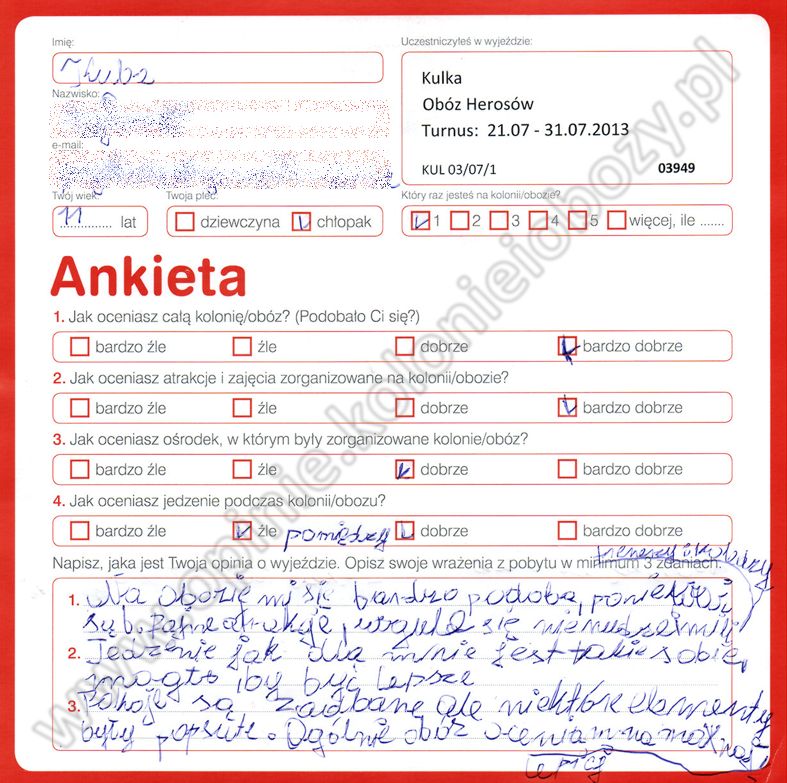 Imię:
Kuba
Uczestniczyłeś w wyjeździe:
Kulka
Obóz Herosów
Turnus: 21.07 - 31.07.2013
KUL 03/07/1 03949
Nazwisko:
e-mail:
Twój wiek:
11 lat
Twoja płeć:
dziewczyna chłopak
Który raz jesteś na kolonii/obozie?
1 2 3 4 5 więcej, ile .......
Ankieta
1. Jak oceniasz całą kolonię/obóz? (Podobało Ci się?)
bardzo źle źle dobrze bardzo dobrze
2. Jak oceniasz atrakcje i zajęcia zorganizowane na kolonii/obozie?
bardzo źle źle dobrze bardzo dobrze
3. Jak oceniasz ośrodek, w którym były zorganizowane kolonie/obóz?
bardzo źle źle dobrze bardzo dobrze
4. Jak oceniasz jedzenie podczas kolonii/obozu?
bardzo źle źle pomiędzy dobrze bardzo dobrze
Napisz, jaka jest Twoja opinia o wyjeździe. Opisz swoje wrażenia z pobytu w minimum 3 zdaniach.
1. Na obozie mi się bardzo podoba, ponieważ
są b. fajne atrakcje, się nie
2. Jedzenie jak dla mnie jest takie sobie,
mogło by być lepsze
3. Pokoje są zadbane ale niektóre elementy
były popsute. Ogólnie obóz oceniam na
www.opinie.kolonieiobozy.pl